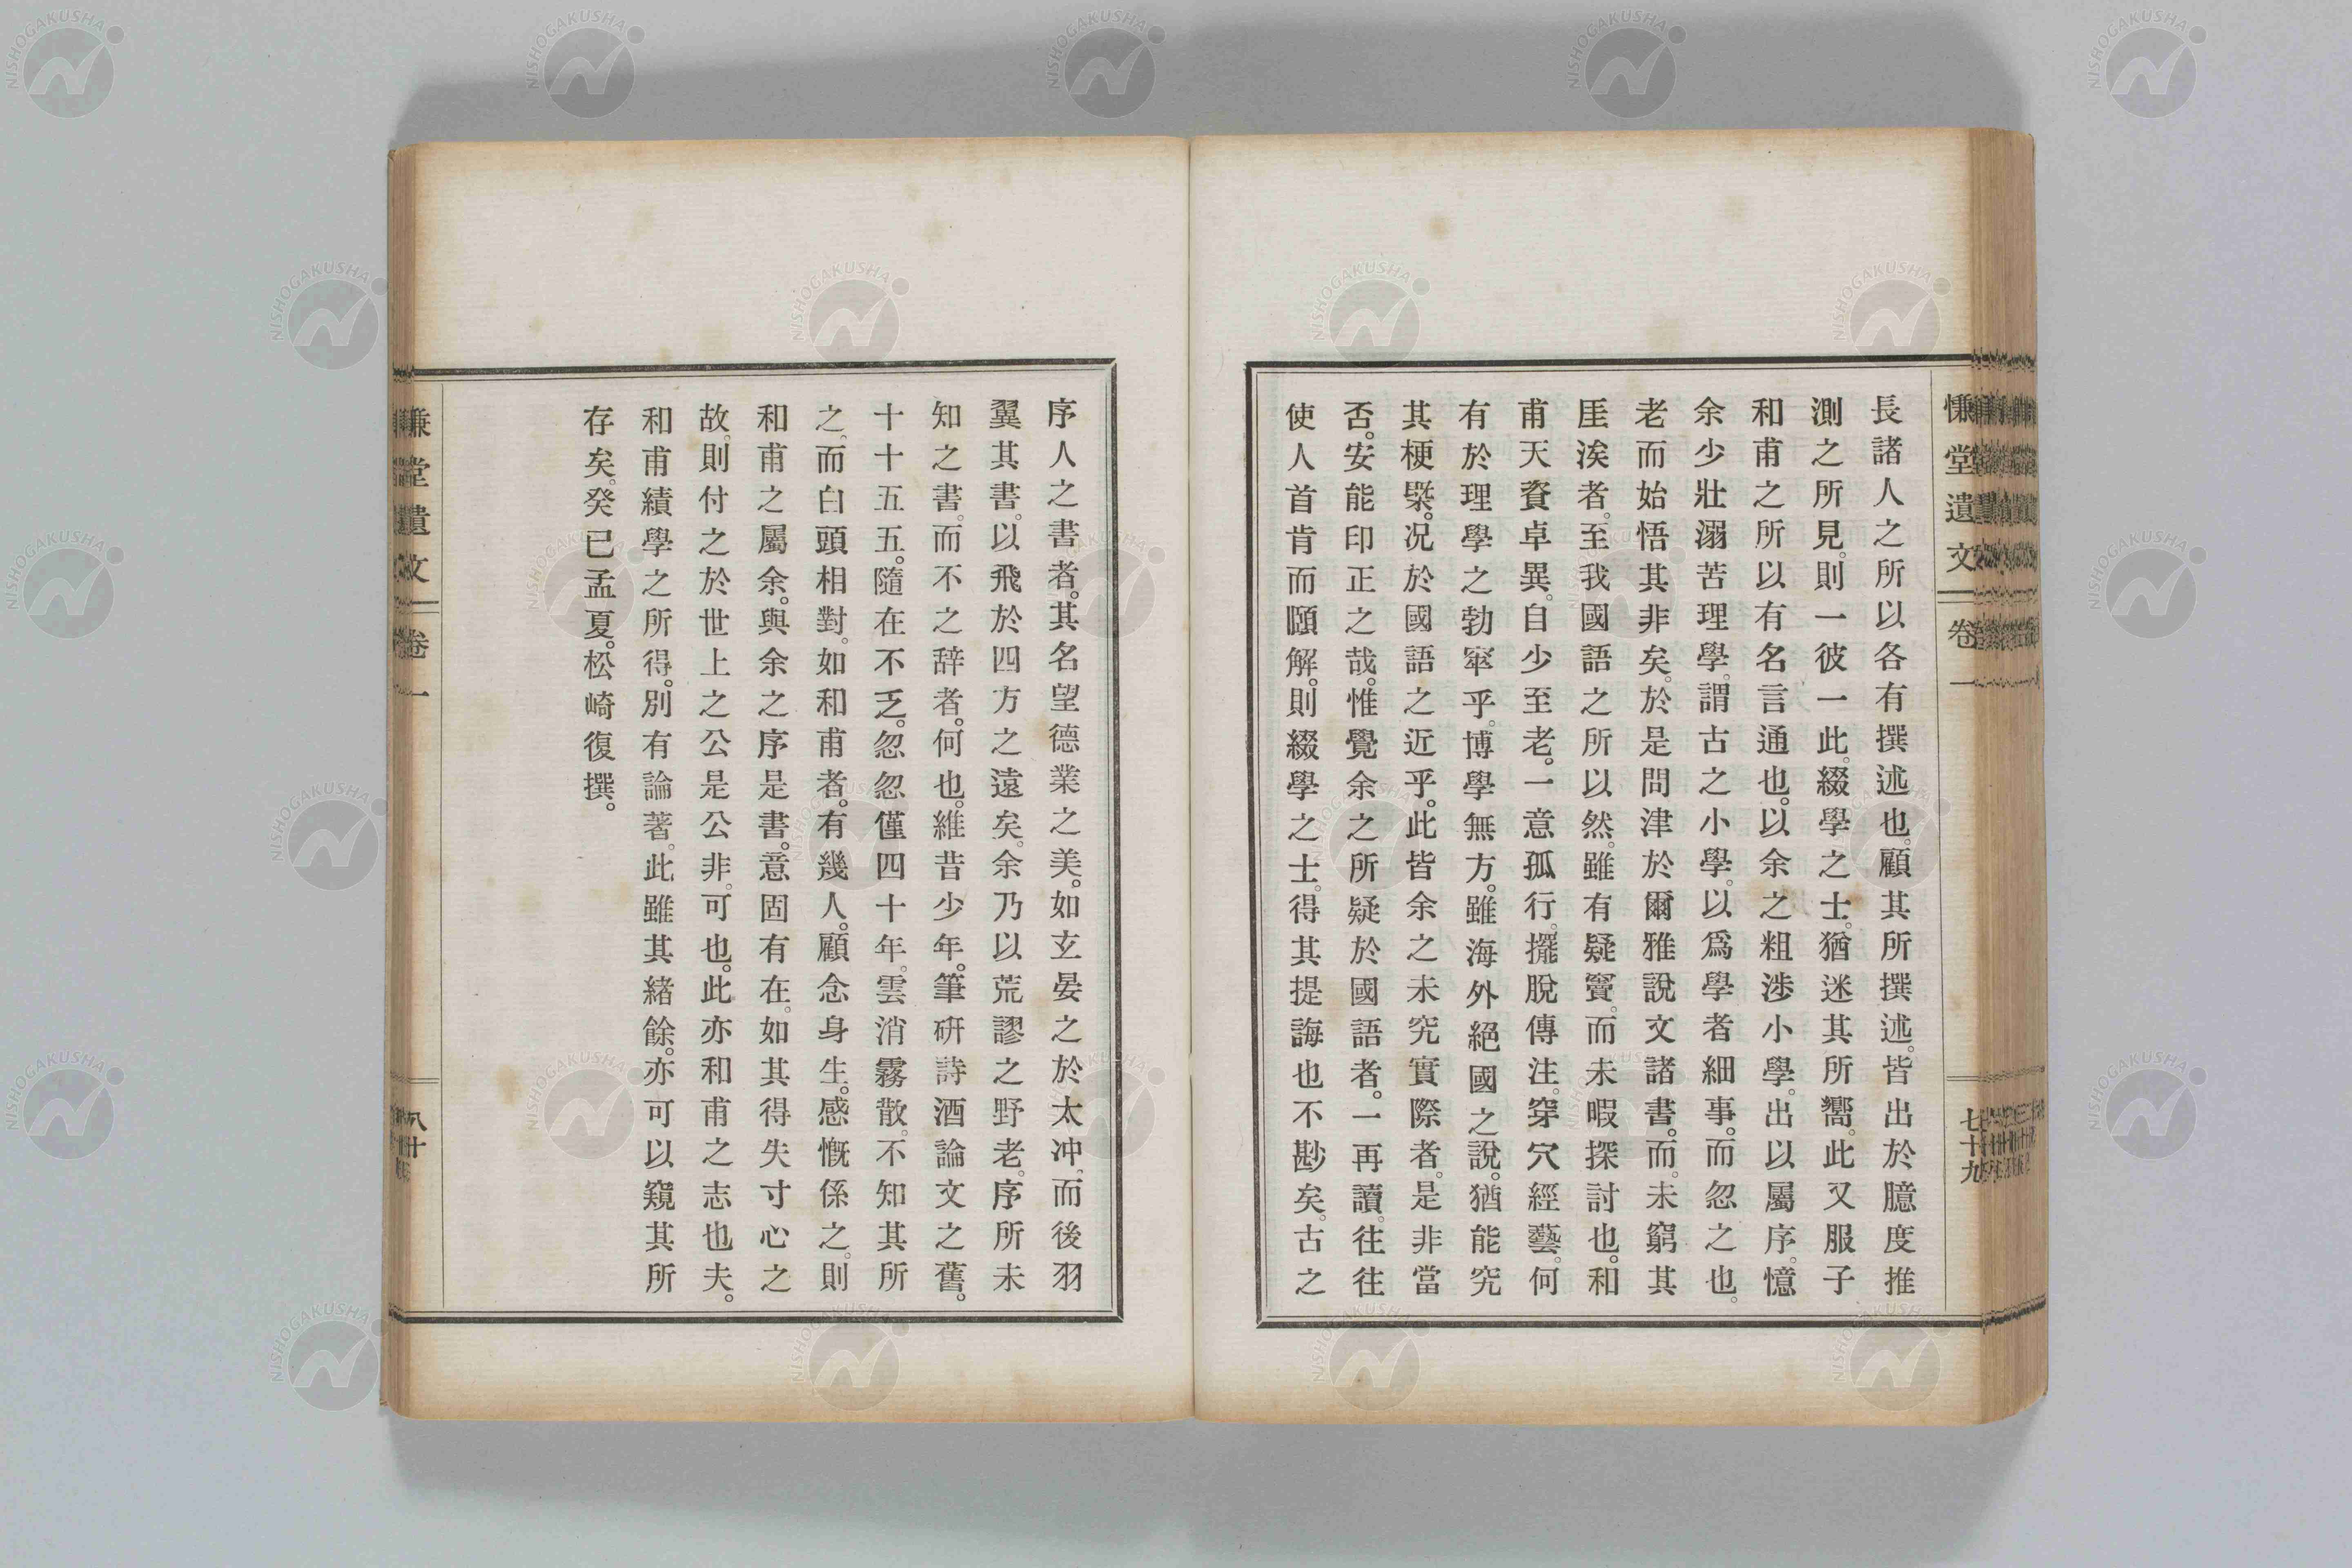 慊堂遺文
卷一
七十九
長諸人之所以各有撰述也。顧其所撰述。皆出於臆度推
測之所見。則一彼一此。綴學之士。猶迷其所嚮。此又服子
和甫之所以有名言通也。以余之粗涉小學。出以屬序。憶
余少壯溺苦理學。謂古之小學。以爲學者細事。而忽之也。
老而始悟其非矣。於是問津於爾雅說文諸書。而未窮其
厓涘者。至我國語之所以然。雖有疑竇。而未暇探討也。和
甫天資卓異。自少至老。一意孤行。擺脫傳注。穿穴經藝。何
有於理學之勃窣乎。博學無方。雖海外絕國之說。猶能究
其梗槩。况於國語之近乎。此皆余之未究實際者。是非當
否。安能印正之哉。惟覺余之所疑於國語者。一再讀。往往
使人首肯而頤解。則綴學之士。得其提誨也不尠矣。古之
序人之書者。其名望德業之美。如玄晏之於太冲、而後羽
翼其書。以飛於四方之遠矣。余乃以荒謬之野老。序所未
知之書。而不之辞者。何也。維昔少年。筆硏詩酒論文之舊。
十十五五。隨在不乏。忽忽僅四十年。雲消霧散。不知其所
之、而白頭相對。如和甫者。有幾人。顧念身生。感慨係之。則
和甫之屬余。與余之序是書。意固有在。如其得失寸心之
故。則付之於世上之公是公非。可也。此亦和甫之志也夫。
和甫績學之所得。別有論著。此雖其緒餘。亦可以窺其所
存矣。癸巳孟夏。松崎復撰。
慊堂遺文
卷一
八十
NISHOGAKUSHA